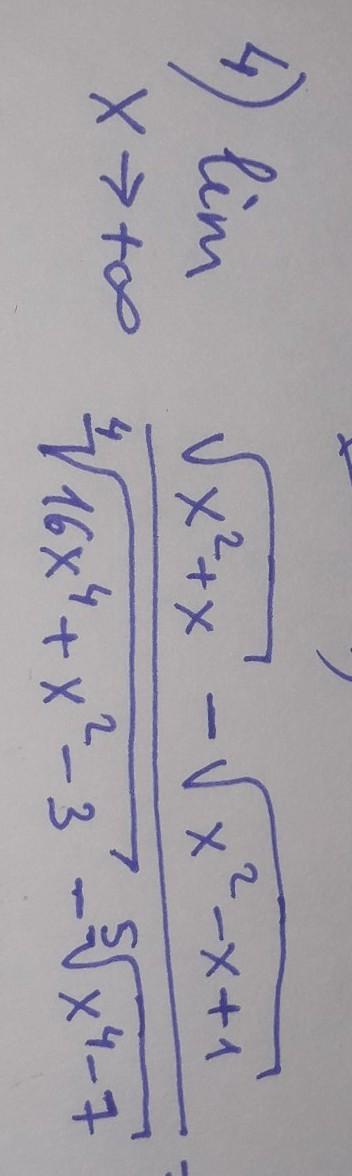 4) lim x→+∞ (√(x²+x) − √(x²−x+1)) / (⁴√(16x⁴+x²−3) − ⁵√(x⁴−7))